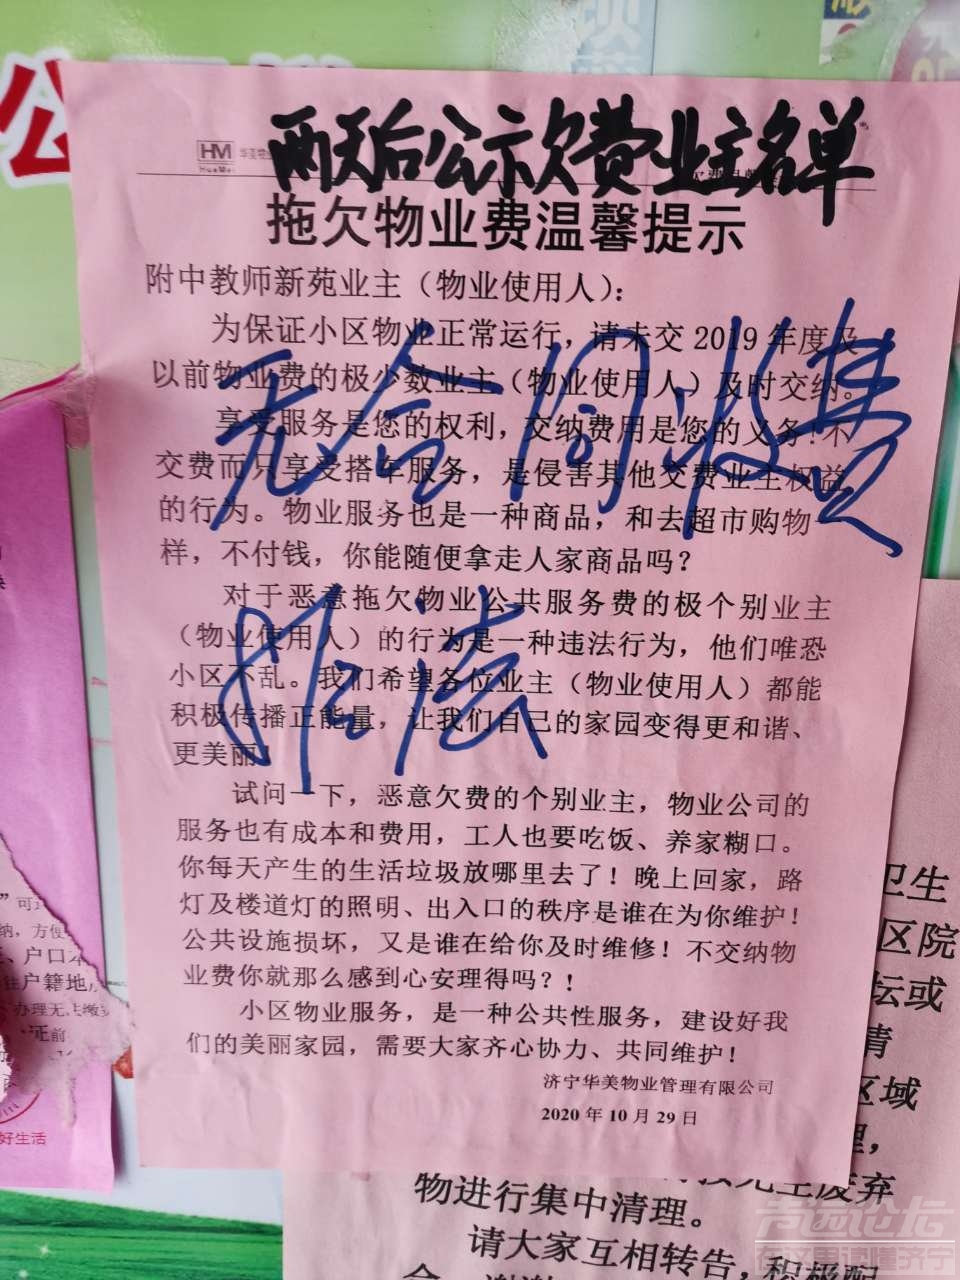 公
HM
HuaMei
华美物业
两天后公示欠费业主名单
拖欠物业费温馨提示
附中教师新苑业主（物业使用人）：
为保证小区物业正常运行，请未交 2019 年度及
以前物业费的极少数业主（物业使用人）及时交纳。
享受服务是您的权利，交纳费用是您的义务！不
交费而只享受搭车服务，是侵害其他交费业主权益
的行为。物业服务也是一种商品，和去超市购物一
样，不付钱，你能随便拿走人家商品吗？
对于恶意拖欠物业公共服务费的极个别业主
（物业使用人）的行为是一种违法行为，他们唯恐
小区不乱。我们希望各位业主（物业使用人）都能
积极传播正能量，让我们自己的家园变得更和谐、
更美丽！
试问一下，恶意欠费的个别业主，物业公司的
服务也有成本和费用，工人也要吃饭、养家糊口。
你每天产生的生活垃圾放哪里去了！晚上回家，路
灯及楼道灯的照明、出入口的秩序是谁在为你维护！
公共设施损坏，又是谁在给你及时维修！不交纳物
业费你就那么感到心安理得吗？！
小区物业服务，是一种公共性服务，建设好我
们的美丽家园，需要大家齐心协力、共同维护！
济宁华美物业管理有限公司
2020 年 10 月 29 日
无合同收费
非法
纳，方便
、户口本
户籍地
办理无
证前
好生活
卫生
区院
坛或
清
区域
理，
废弃
物进行集中清理。
请大家互相转告，积极配
合，谢谢
声远论坛
在这里读懂济宁